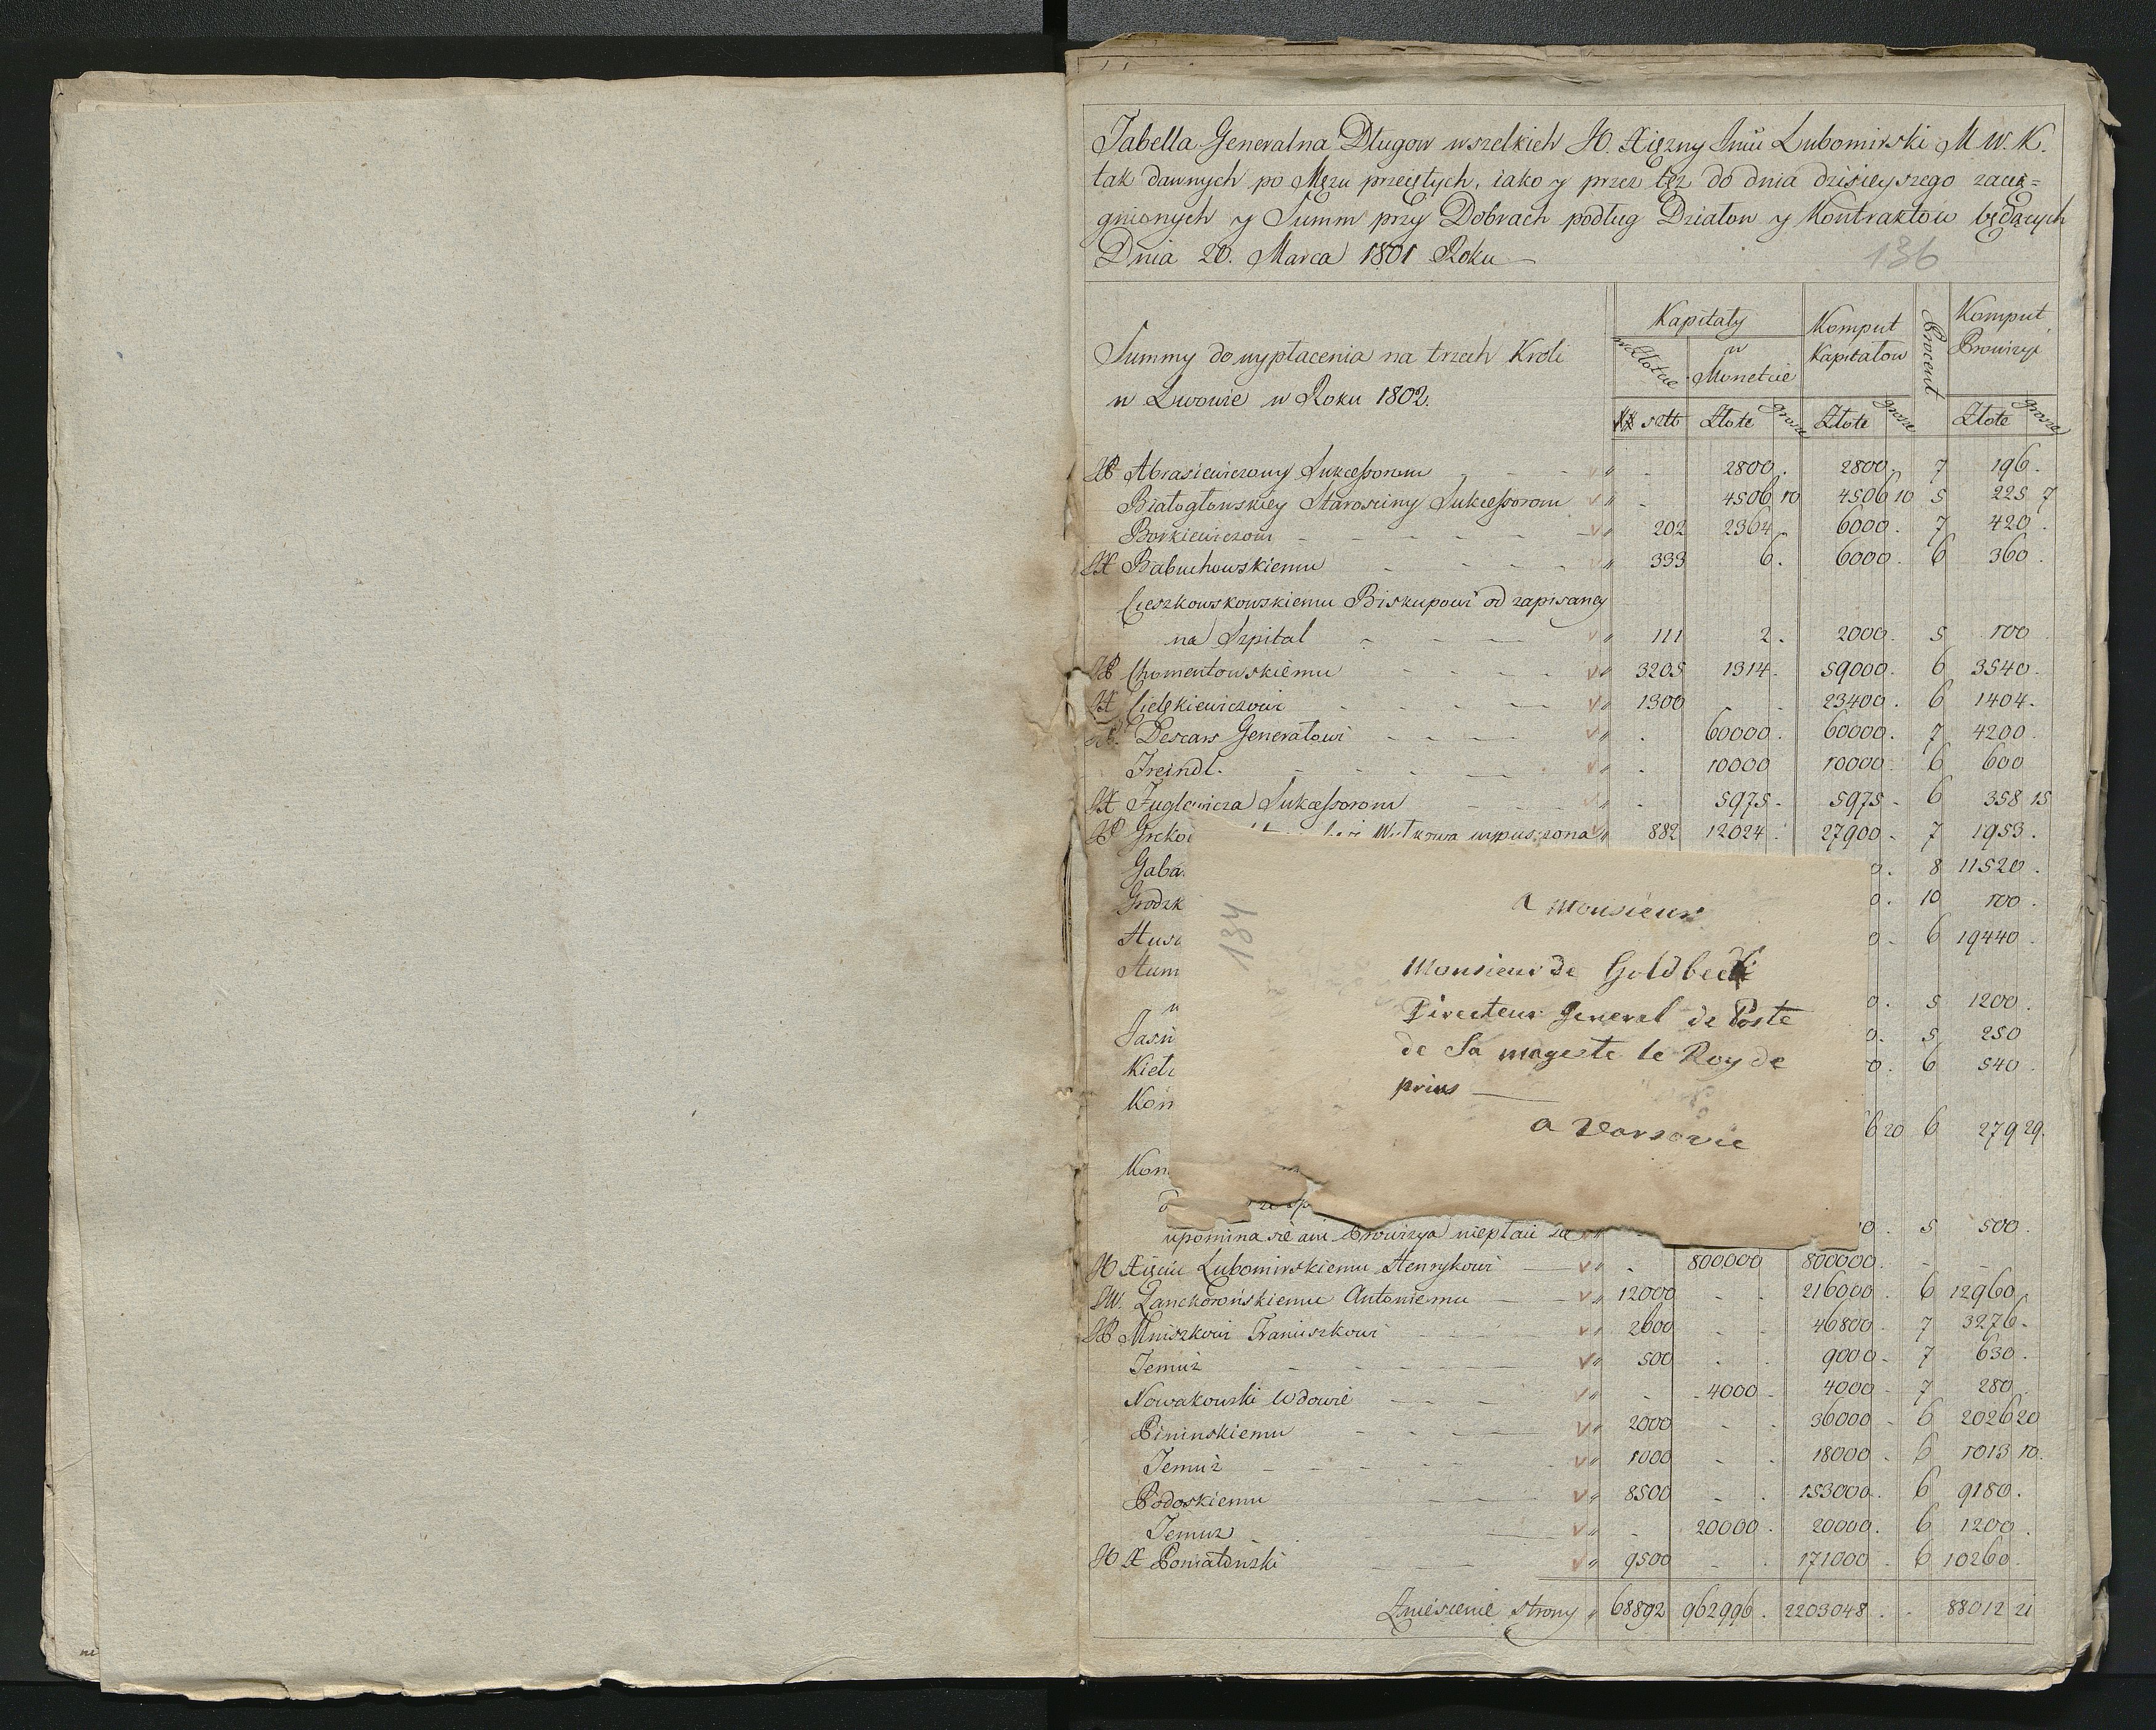 Tabella Generalna Długow wszelkich JO. Xiężny Jmći Lubomirski M W. K.
tak dawnych po Mężu przeiętych, iako y przez tęż do dnia dzisieyszego zacią=
gnionych y Summ przy Dobrach podług Działow y Kontraktow będących
Dnia 20. Marca 1801 Roku
136
Summy do wypłacenia na trzech Kroli
w Lwowie w Roku 1802.
Kapitały
w Złocie
w Monecie
Komput Kapitałow
Procent
Komput Prowizyi
szt Złote grosze Złote grosze Złote grosze
Abrasiewiczowy Sukcessorom 2800. 2800. 7 196.
Białogłowskiey Starosciny Sukcessorom 4506 10 4506 10 5 225 7
Borkiewiczowi 202 2364. 6000. 7 420.
Babuchowskiemu 333 6. 6000. 6 360.
Cieszkowskowskiemu Biskupowi od zapisaney
na Szpital 111 2. 2000. 5 100
Chomentowskiemu 3205 1314. 59000. 6 3540.
Cielękiewiczowi 1300 23400. 6 1404.
Descars Generałowi 60000. 60000. 7 4200.
Freindl. 10000 10000. 6 600
Fuglewicza Sukcessorom 5975- 5975- 6 358 15
Grekow Witkowa wypuszczona 882 12024. 27900- 7 1953.
Gaba 0. 8 11520.
Grodzk 0. 10 100.
Husa 0- 6 19440.
Hum
0. 5 1200.
Jasi 0. 5 250
Kiel 0. 6 540.
Kom
6 20 6 279 29.
Kon
upomina się ani Prowizya niepłaci się 0. 5 500.
JO Xięciu Lubomirskiemu Henrykowi 800000 800000.
JW. Lanckorońskiemu Antoniemu 12000 216000. 6 12960
Mniszkowi Franciszkowi 2600 46800. 7 3276.
Temuż 500 9000- 7 630.
Nowakowski Wdowie 4000- 4000- 7 280
Pininskiemu 2000 36000- 6 2026 20
Temuż 1000 18000- 6 1013 10.
Podoskiemu 8500 153000. 6 9180.
Temuz 20000. 20000. 6 1200.
JO X Poniatowski 9500 171000- 6 10260.
Zniesienie strony 68892 962996. 2203048. 88012 21
134
a Monsieur
Monsieur de Goldbeck
Directeur General de Poste
de Sa mageste le Roy de
prius
a varsovie